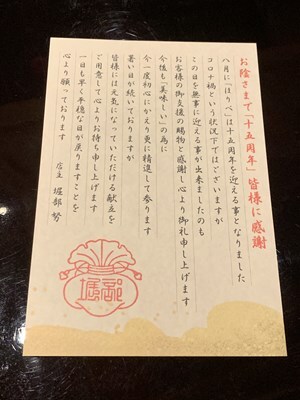 お陰さまで「十五周年」皆様に感謝
八月に「ほりべ」は十五周年を迎える事となりました
コロナ禍という状況下ではございますが
この日を無事に迎える事が出来ましたのも
お客様の御支援の賜物と感謝し心より御礼申し上げます
今後も「美味しい」の為に
今一度初心にかえり更に精進して参ります
暑い日が続いていますが
皆様には元気になっていただける献立を
ご用意して心よりお待ち申し上げます
一日も早く平穏な日が戻りますことを
心より願っております
店主 堀部 努